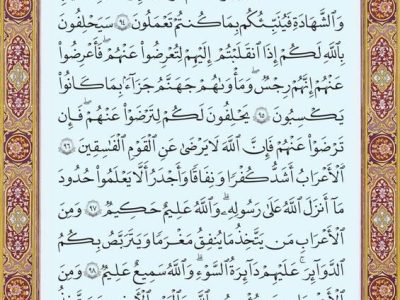 وَالشَّهَٰدَةِ فَيُنَبِّئُكُم بِمَا كُنتُمْ تَعْمَلُونَ ٩٤ سَيَحْلِفُونَ
بِاللَّهِ لَكُمْ إِذَا انقَلَبْتُمْ إِلَيْهِمْ لِتُعْرِضُوا۟ عَنْهُمْ ۖ فَأَعْرِضُوا۟
عَنْهُمْ ۖ إِنَّهُمْ رِجْسٌ ۖ وَمَأْوَىٰهُمْ جَهَنَّمُ جَزَآءًۢ بِمَا كَانُوا۟
يَكْسِبُونَ ٩٥ يَحْلِفُونَ لَكُمْ لِتَرْضَوْا۟ عَنْهُمْ ۖ فَإِن
تَرْضَوْا۟ عَنْهُمْ فَإِنَّ اللَّهَ لَا يَرْضَىٰ عَنِ الْقَوْمِ الْفَٰسِقِينَ ٩٦
الْأَعْرَابُ أَشَدُّ كُفْرًا وَنِفَاقًا وَأَجْدَرُ أَلَّا يَعْلَمُوا۟ حُدُودَ
مَآ أَنزَلَ اللَّهُ عَلَىٰ رَسُولِهِ ۗ وَاللَّهُ عَلِيمٌ حَكِيمٌ ٩٧ وَمِنَ
الْأَعْرَابِ مَن يَتَّخِذُ مَا يُنفِقُ مَغْرَمًا وَيَتَرَبَّصُ بِكُمُ
الدَّوَآئِرَ ۚ عَلَيْهِمْ دَآئِرَةُ السَّوْءِ ۗ وَاللَّهُ سَمِيعٌ عَلِيمٌ ٩٨